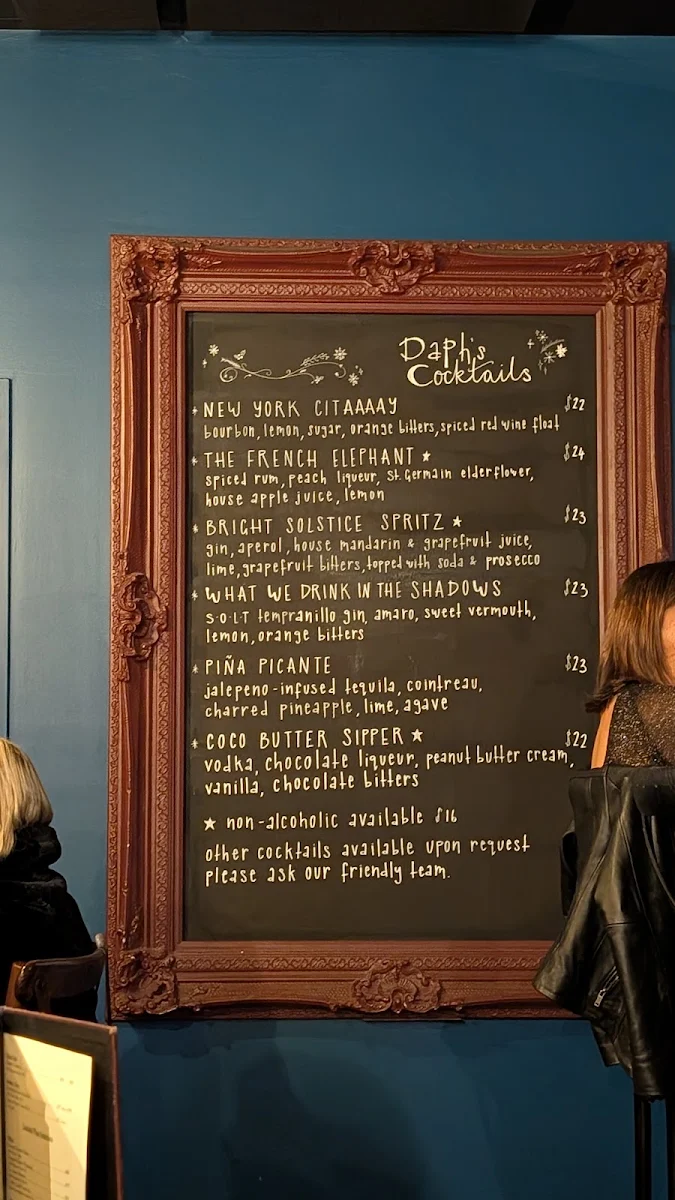 Daph's
Cocktails
* NEW YORK CITAAAAY $22
bourbon, lemon, sugar, orange bitters, spiced red wine float
* THE FRENCH ELEPHANT ★ $24
spiced rum, peach liqueur, St. Germain elderflower,
house apple juice, lemon
* BRIGHT SOLSTICE SPRITZ ★ $23
gin, aperol, house mandarin & grapefruit juice,
lime, grapefruit bitters, topped with soda & prosecco
* WHAT WE DRINK IN THE SHADOWS $23
S·O·L·T tempranillo gin, amaro, sweet vermouth,
lemon, orange bitters
* PIÑA PICANTE $23
jalepeno-infused tequila, cointreau,
charred pineapple, lime, agave
* COCO BUTTER SIPPER ★ $22
vodka, chocolate liqueur, peanut butter cream,
vanilla, chocolate bitters
★ non-alcoholic available $16
other cocktails available upon request
please ask our friendly team.